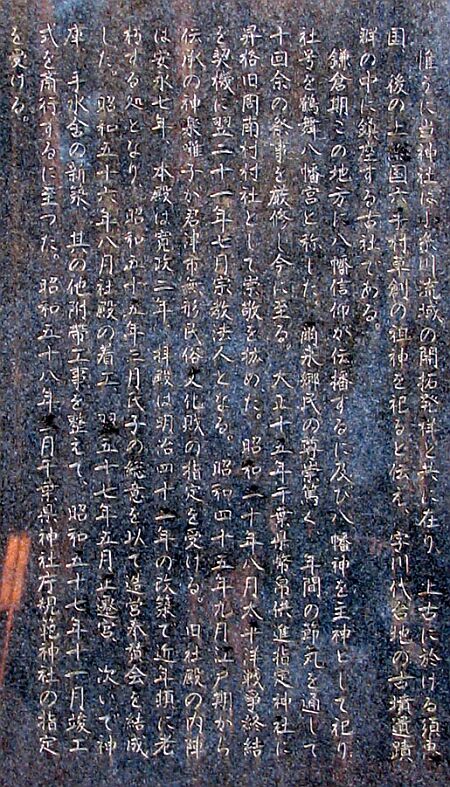 惟うに当神社は小糸川流域の開拓発祥と共に在り、上古に於ける須恵
国、後の上総国六手村草創の祖神を祀ると伝え、字川代台地の古墳遺蹟
群の中に鎮座する古社である。
鎌倉期この地方に八幡信仰が伝播するに及び八幡神を主神として祀り
社号を鶴舞八幡宮と称した。爾来郷民の尊崇篤く、年間の節元を通して
十回余の祭事を厳修し今に至る。大正十五年千葉県幣帛供進指定神社に
昇格旧周南村村社として崇敬を拡めた。昭和二十年八月太平洋戦争終結
を契機に翌二十一年七月宗教法人となる。昭和四十五年九月江戸期から
伝承の神楽囃子が君津市無形民俗文化財の指定を受ける。旧社殿の内陣
は安永七年、本殿は寛政二年、拝殿は明治四十一年の改築で近年頓に老
朽する処となり、昭和五十五年二月氏子の総意を以て造宮奉賛会を結成
した。昭和五十六年八月社殿の着工、翌五十七年五月上遷宮、次いで神
庫、手水舎の新築、其の他附帯工事を整えて、昭和五十七年十一月竣工
式を斎行するに至った。昭和五十八年 月千葉県神社庁規範神社の指定
を受ける。